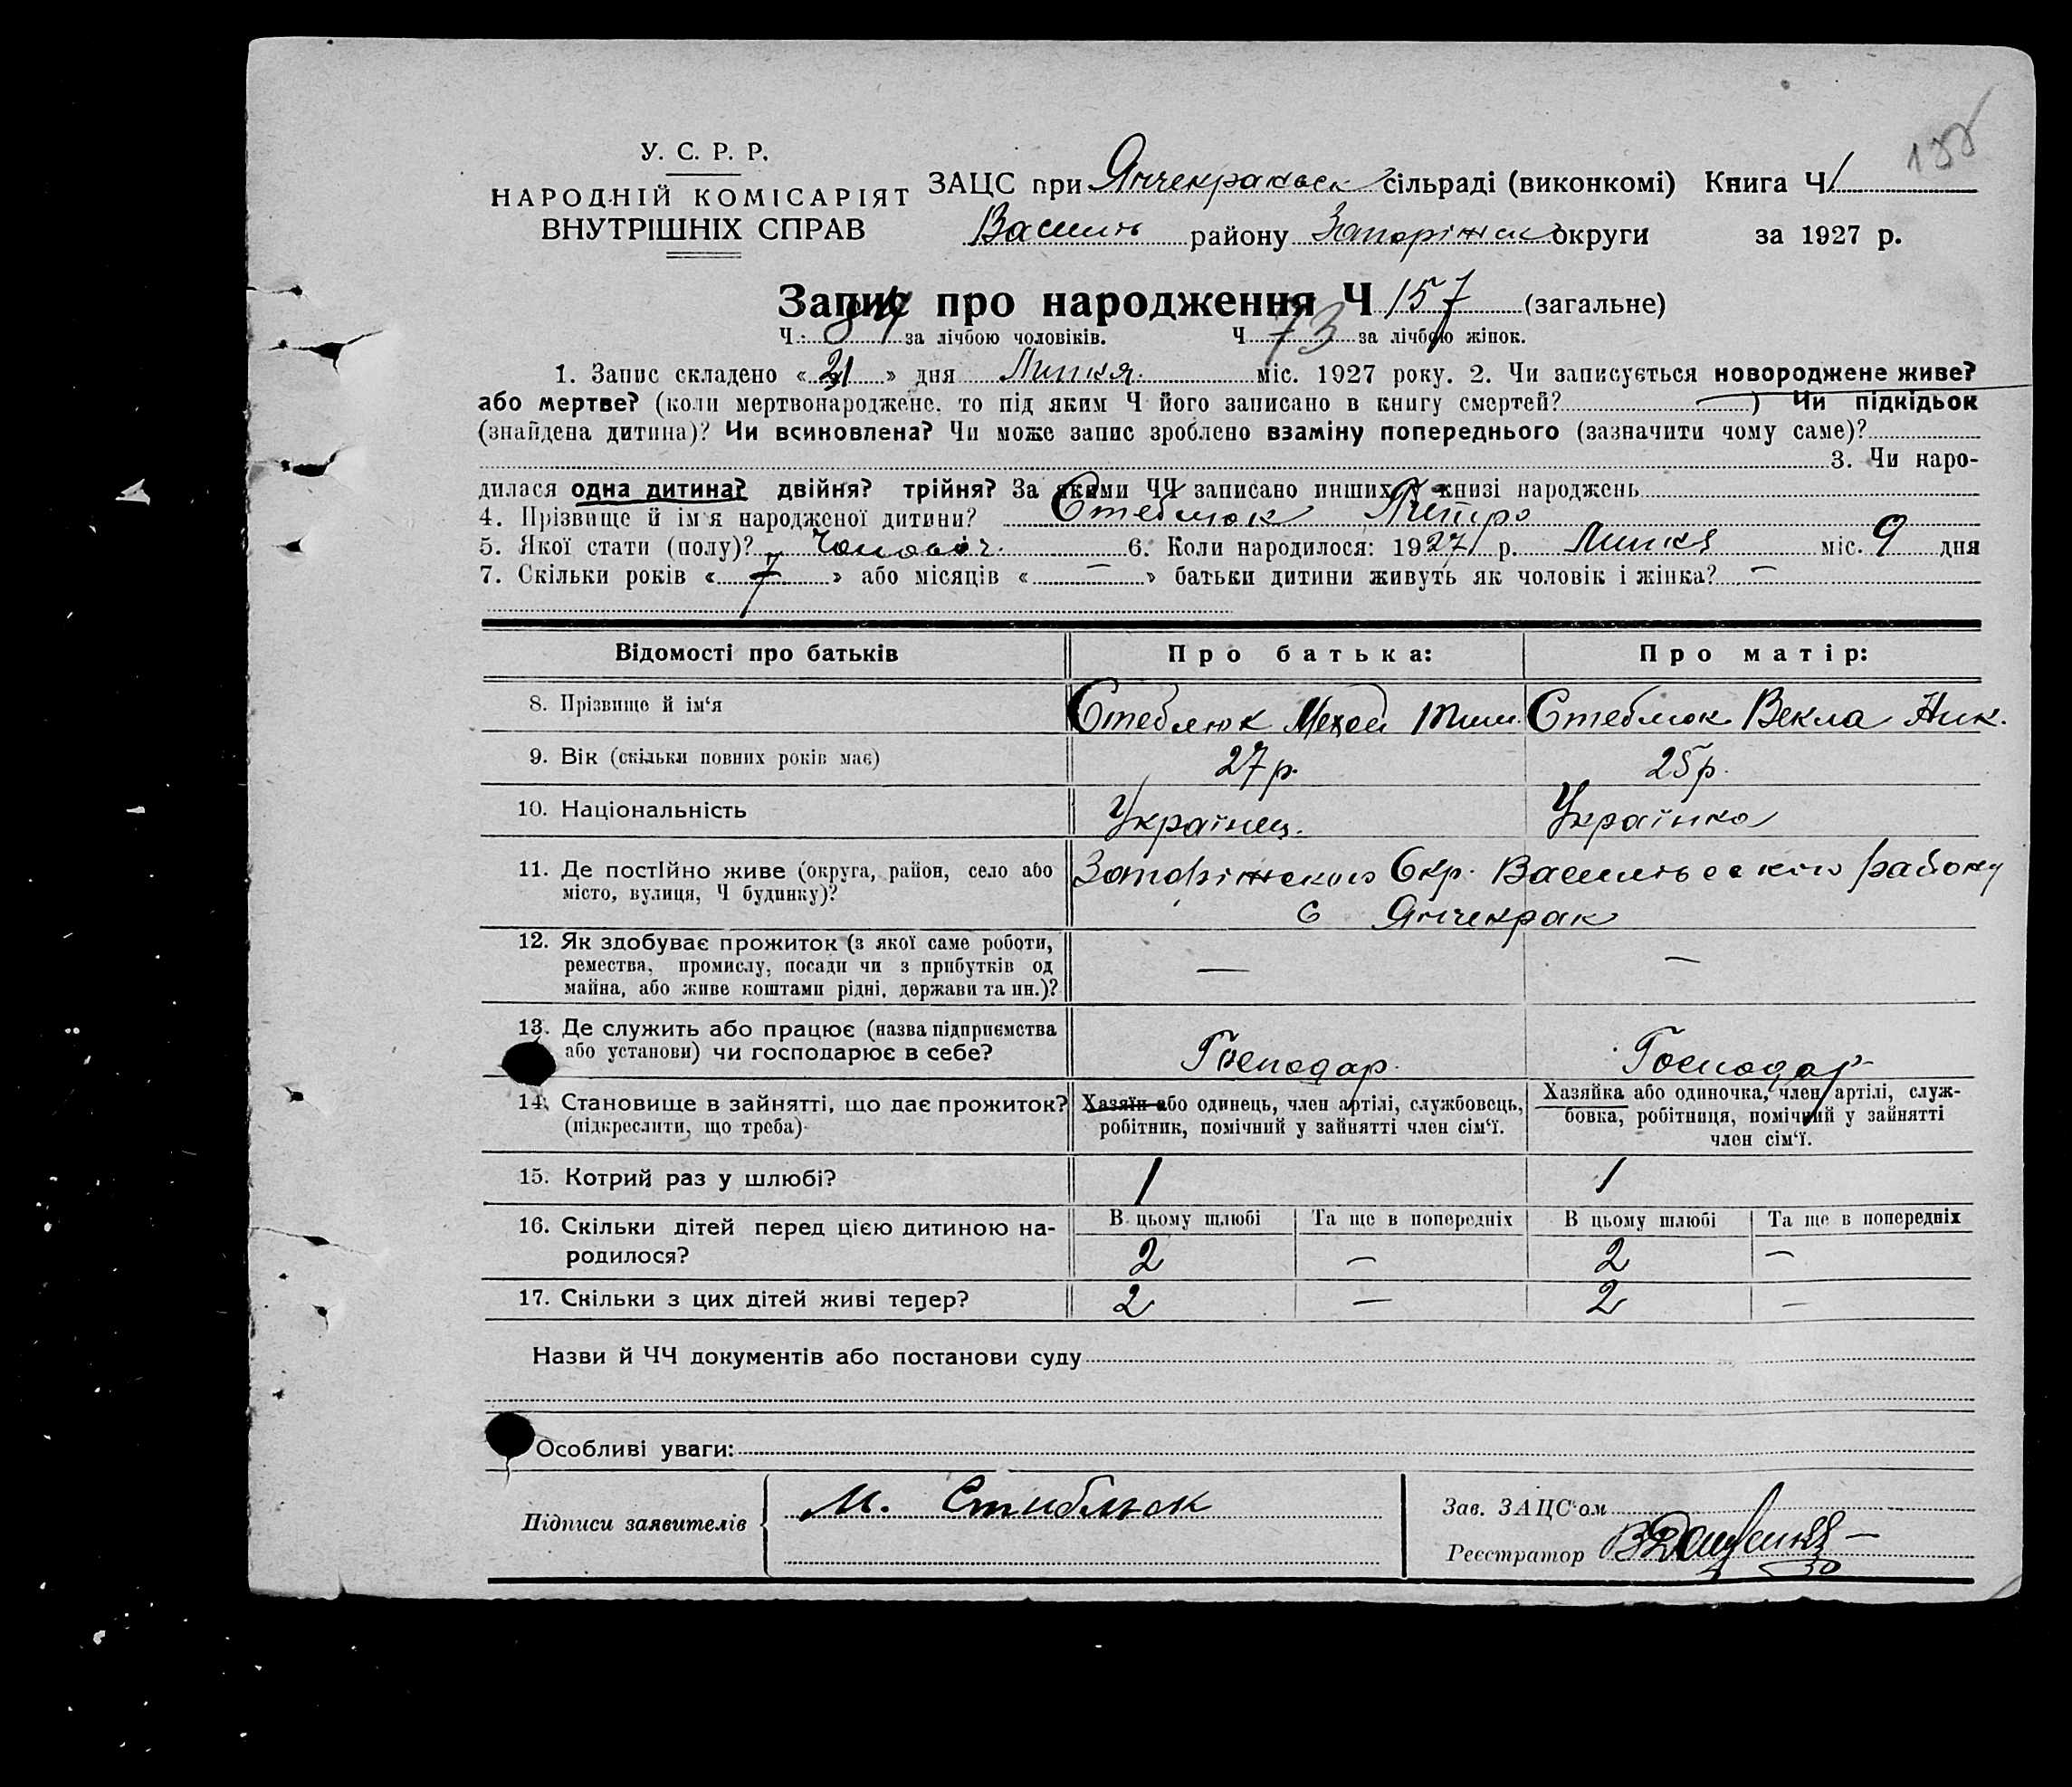 188
У. С. Р. Р.
НАРОДНІЙ КОМІСАРІЯТ
ВНУТРІШНІХ СПРАВ
ЗАЦС при Янчекракськ сільраді (виконкомі) Книга Ч 1
Василів району Запоріжск округи за 1927 р.
Запис про народження Ч 157 (загальне)
Ч. 84 за лічбою чоловіків. Ч 73 за лічбою жінок.
1. Запис складено « 21 » дня Липня міс. 1927 року. 2. Чи записується новороджене живе?
або мертве? (коли мертвонароджене, то під яким Ч його записано в книгу смертей? ) Чи підкідьок
(знайдена дитина)? Чи всиновлена? Чи може запис зроблено взаміну попереднього (зазначити чому саме)?
3. Чи наро-
дилася одна дитина? двійня? трійня? За якими ЧЧ записано инших у книзі народжень
4. Прізвище й ім'я народженої дитини? Стеблюк Питро
5. Якої стати (полу)? Чоловіч. 6. Коли народилося: 1927 р. Липня міс. 9 дня
7. Скільки років « 7 » або місяців « — » батьки дитини живуть як чоловік і жінка? —
Відомості про батьків Про батька: Про матір:
8. Прізвище й ім‘я Стеблюк Тим. Стеблюк Векла Ник.
9. Вік (скільки повних років має) 27 р. 25 р.
10. Національність Українец. Українка
11. Де постійно живе (округа, район, село або Запоріжского Окр. Васильевского району
місто, вулиця, Ч будинку)? С Янчекрак
12. Як здобуває прожиток (з якої саме роботи, — —
ремества, промислу, посади чи з прибутків од
майна, або живе коштами рідні, держави та ин.)?
13. Де служить або працює (назва підприємства
або установи) чи господарює в себе? Господар. Господар
14. Становище в зайнятті, що дає прожиток? Хазяїн або одинець, член артілі, службовець, Хазяйка або одиночка, член артілі, служ-
(підкреслити, що треба) робітник, помічний у зайнятті член сім‘ї. бовка, робітниця, помічний у зайнятті
член сім‘ї.
15. Котрий раз у шлюбі? 1 1
16. Скільки дітей перед цією дитиною на- В цьому шлюбі Та ще в попередніх В цьому шлюбі Та ще в попередніх
родилося? 2 — 2 —
17. Скільки з цих дітей живі тепер? 2 — 2 —
Назви й ЧЧ документів або постанови суду
Особливі уваги:
Підписи заявителів М. Стиблюк
Зав. ЗАЦС‘ом
Реєстратор